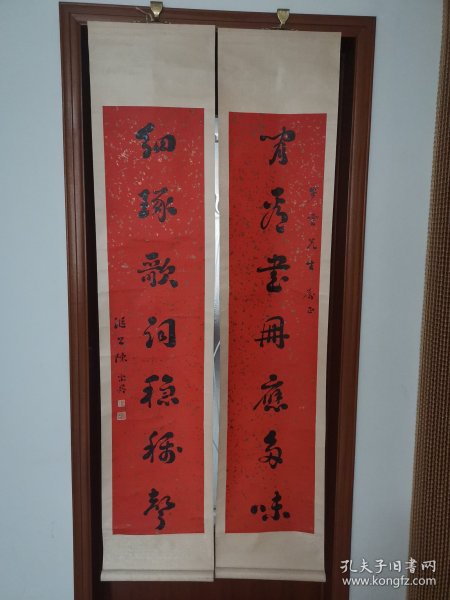 閒尋書冊應多味
先生
細琢歌詞穩稱聲
陳
孔夫子旧书网
www.kongfz.com